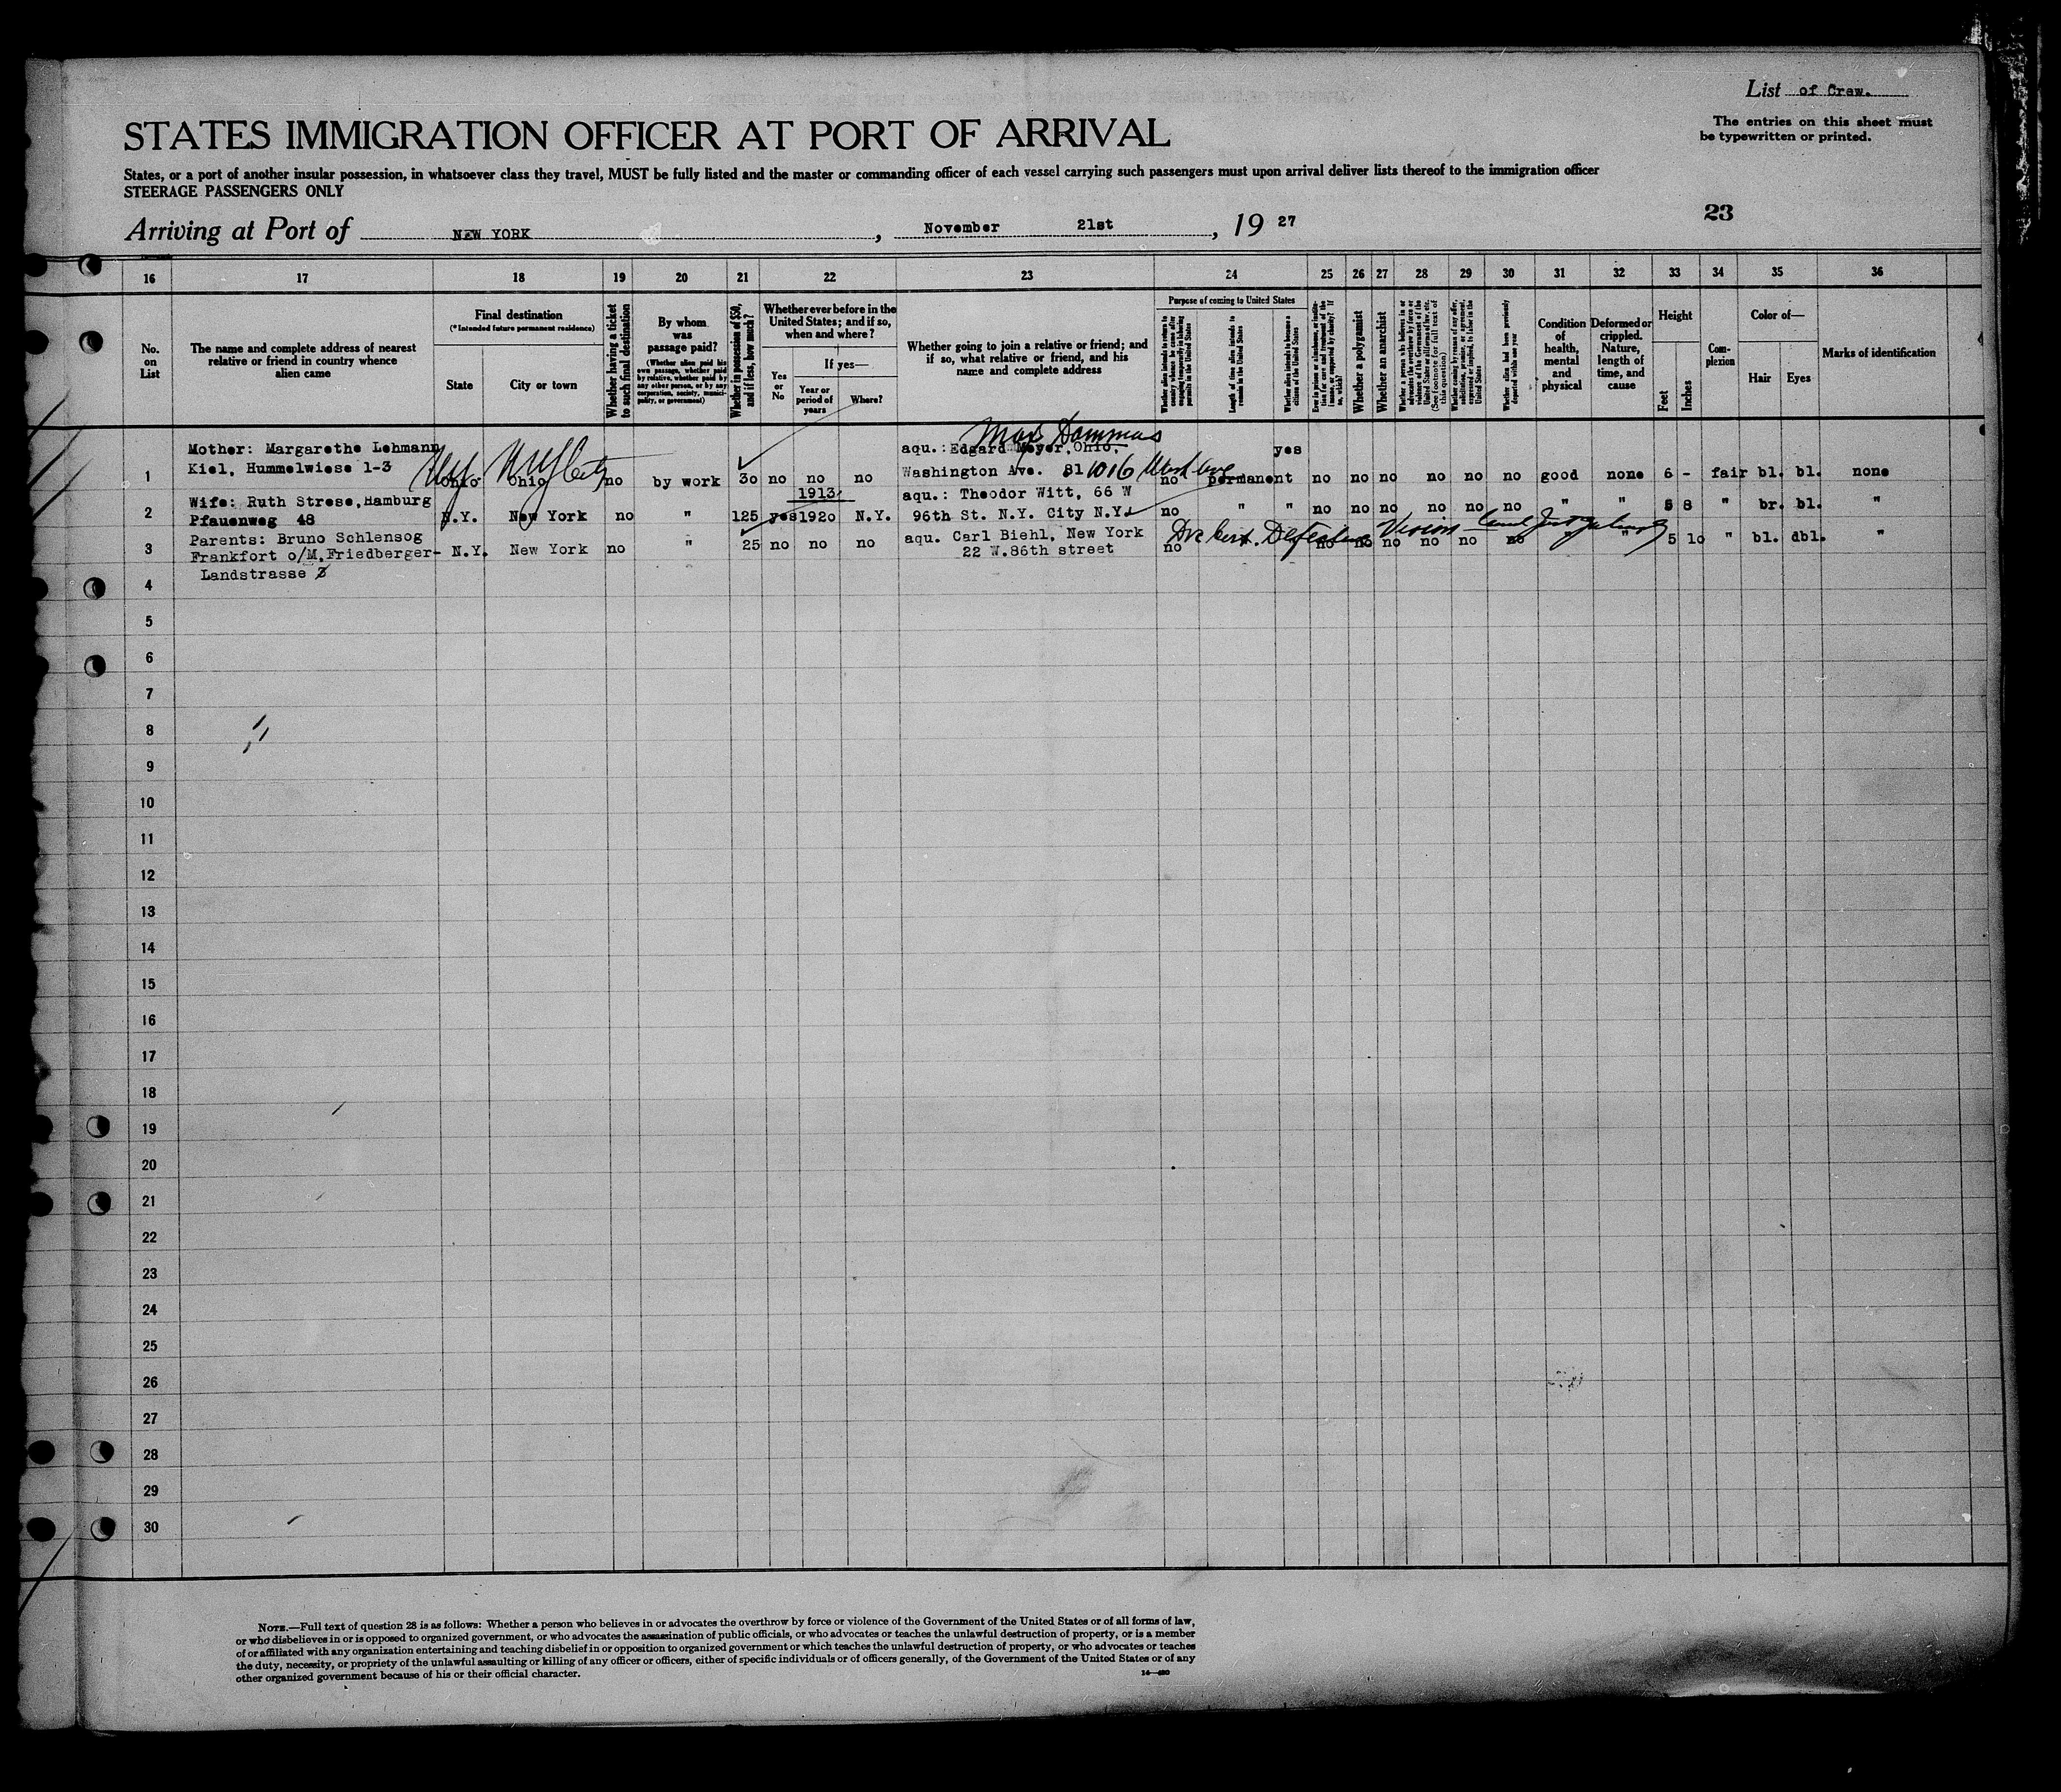 List of Crew.
The entries on this sheet must
be typewritten or printed.
STATES IMMIGRATION OFFICER AT PORT OF ARRIVAL
States, or a port of another insular possession, in whatsoever class they travel, MUST be fully listed and the master or commanding officer of each vessel carrying such passengers must upon arrival deliver lists thereof to the immigration officer
STEERAGE PASSENGERS ONLY
23
Arriving at Port of NEW YORK, November 21st, 19 27
16 17 18 19 20 21 22 23 24 25 26 27 28 29 30 31 32 33 34 35 36
No.
on
List
The name and complete address of nearest
relative or friend in country whence
alien came
Final destination
(*Intended future permanent residence)
State
City or town
Whether having a ticket
to such final destination
By whom
was
passage paid?
(Whether alien paid his
own passage, whether paid
by relative, whether paid by
any other person, or by any
corporation, society, munici-
pality, or government)
Whether in possession of $50,
and if less, how much?
Whether ever before in the
United States; and if so,
when and where?
If yes—
Yes
or
No
Year or
period of
years
Where?
Whether going to join a relative or friend; and
if so, what relative or friend, and his
name and complete address
Purpose of coming to United States
Whether alien intends to return to
country whence he came after
engaging temporarily in laboring
pursuits in the United States
Length of time alien intends to
remain in the United States
Whether alien intends to become a
citizen of the United States
Ever in prison or almshouse, or institu-
tion for care and treatment of the
insane, or supported by charity? If
so, which?
Whether a polygamist
Whether an anarchist
Whether a person who believes in or
advocates the overthrow by force or
violence of the Government of the
United States or all forms of law, etc.
(See footnote for full text of
this question)
Whether coming by reason of any offer,
solicitation, promise, or agreement,
expressed or implied, to labor in the
United States
Whether alien had been previously
deported within one year
Condition
of
health,
mental
and
physical
Deformed or
crippled.
Nature,
length of
time, and
cause
Height
Feet
Inches
Com-
plexion
Color of—
Hair
Eyes
Marks of identification
Max Dammas
Mother: Margarethe Lehmann aqu.: Edgard Meyer, Ohio, yes
1 Kiel, Hummelwiese 1-3 Ohio Ohio no by work 30 no no no Washington Ave. 81 1016 West Ave no permanent no no no no no no good none 6 - fair bl. bl. none
N.Y. N.Y. City
Wife: Ruth Strese, Hamburg 1913 aqu.: Theodor Witt, 66 W
2 Pfauenweg 48 N.Y. New York no " 125 yes 1920 N.Y. 96th St. N.Y. City N.Y. no " " no no no no no no " " 5 8 " br. bl. "
Parents: Bruno Schlensog aqu. Carl Biehl, New York
3 Frankfort o/M, Friedberger- N.Y. New York no " 25 no no no 22 W. 86th street no no no no no no no " " 5 10 " bl. dbl. "
Dr. Cert. Defective Vision
Landstrasse
4
5
6
7
8
9
10
11
12
13
14
15
16
17
18
19
20
21
22
23
24
25
26
27
28
29
30
NOTE.—Full text of question 28 is as follows: Whether a person who believes in or advocates the overthrow by force or violence of the Government of the United States or of all forms of law,
or who disbelieves in or is opposed to organized government, or who advocates the assassination of public officials, or who advocates or teaches the unlawful destruction of property, or is a member
of or affiliated with any organization entertaining and teaching disbelief in or opposition to organized government or which teaches the unlawful destruction of property, or who advocates or teaches
the duty, necessity, or propriety of the unlawful assaulting or killing of any officer or officers, either of specific individuals or of officers generally, of the Government of the United States or of any
other organized government because of his or their official character.